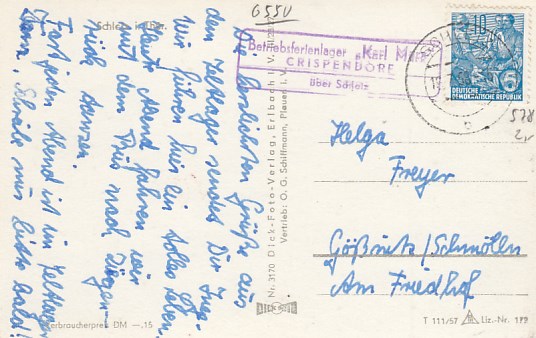 Schleiz i. Thür.
6550
Betriebsferienlager „Karl Marx"
CRISPENDORF
über Schleiz
10
DEUTSCHE
DEMOKRATISCHE REPUBLIK
5
578
2,-
Die herzlichsten Grüße aus
dem Zeltlager sendet Dir Inge.
Wir führen hier ein tolles Leben.
Heute Abend fahren wir
mit dem Bus nach
Fast jeden Abend ist im Zeltlager
Tanz. Schreib mir bitte bald!
Helga
Freyer
Gößnitz/Schmölln
Am Friedhof
Nr. 3170 Dick-Foto-Verlag, Erlbach i. V.
Vertrieb: O. G. Schiffmann, Plauen i. V.
Verbraucherpreis DM —.15
T 111/57 Liz.-Nr.